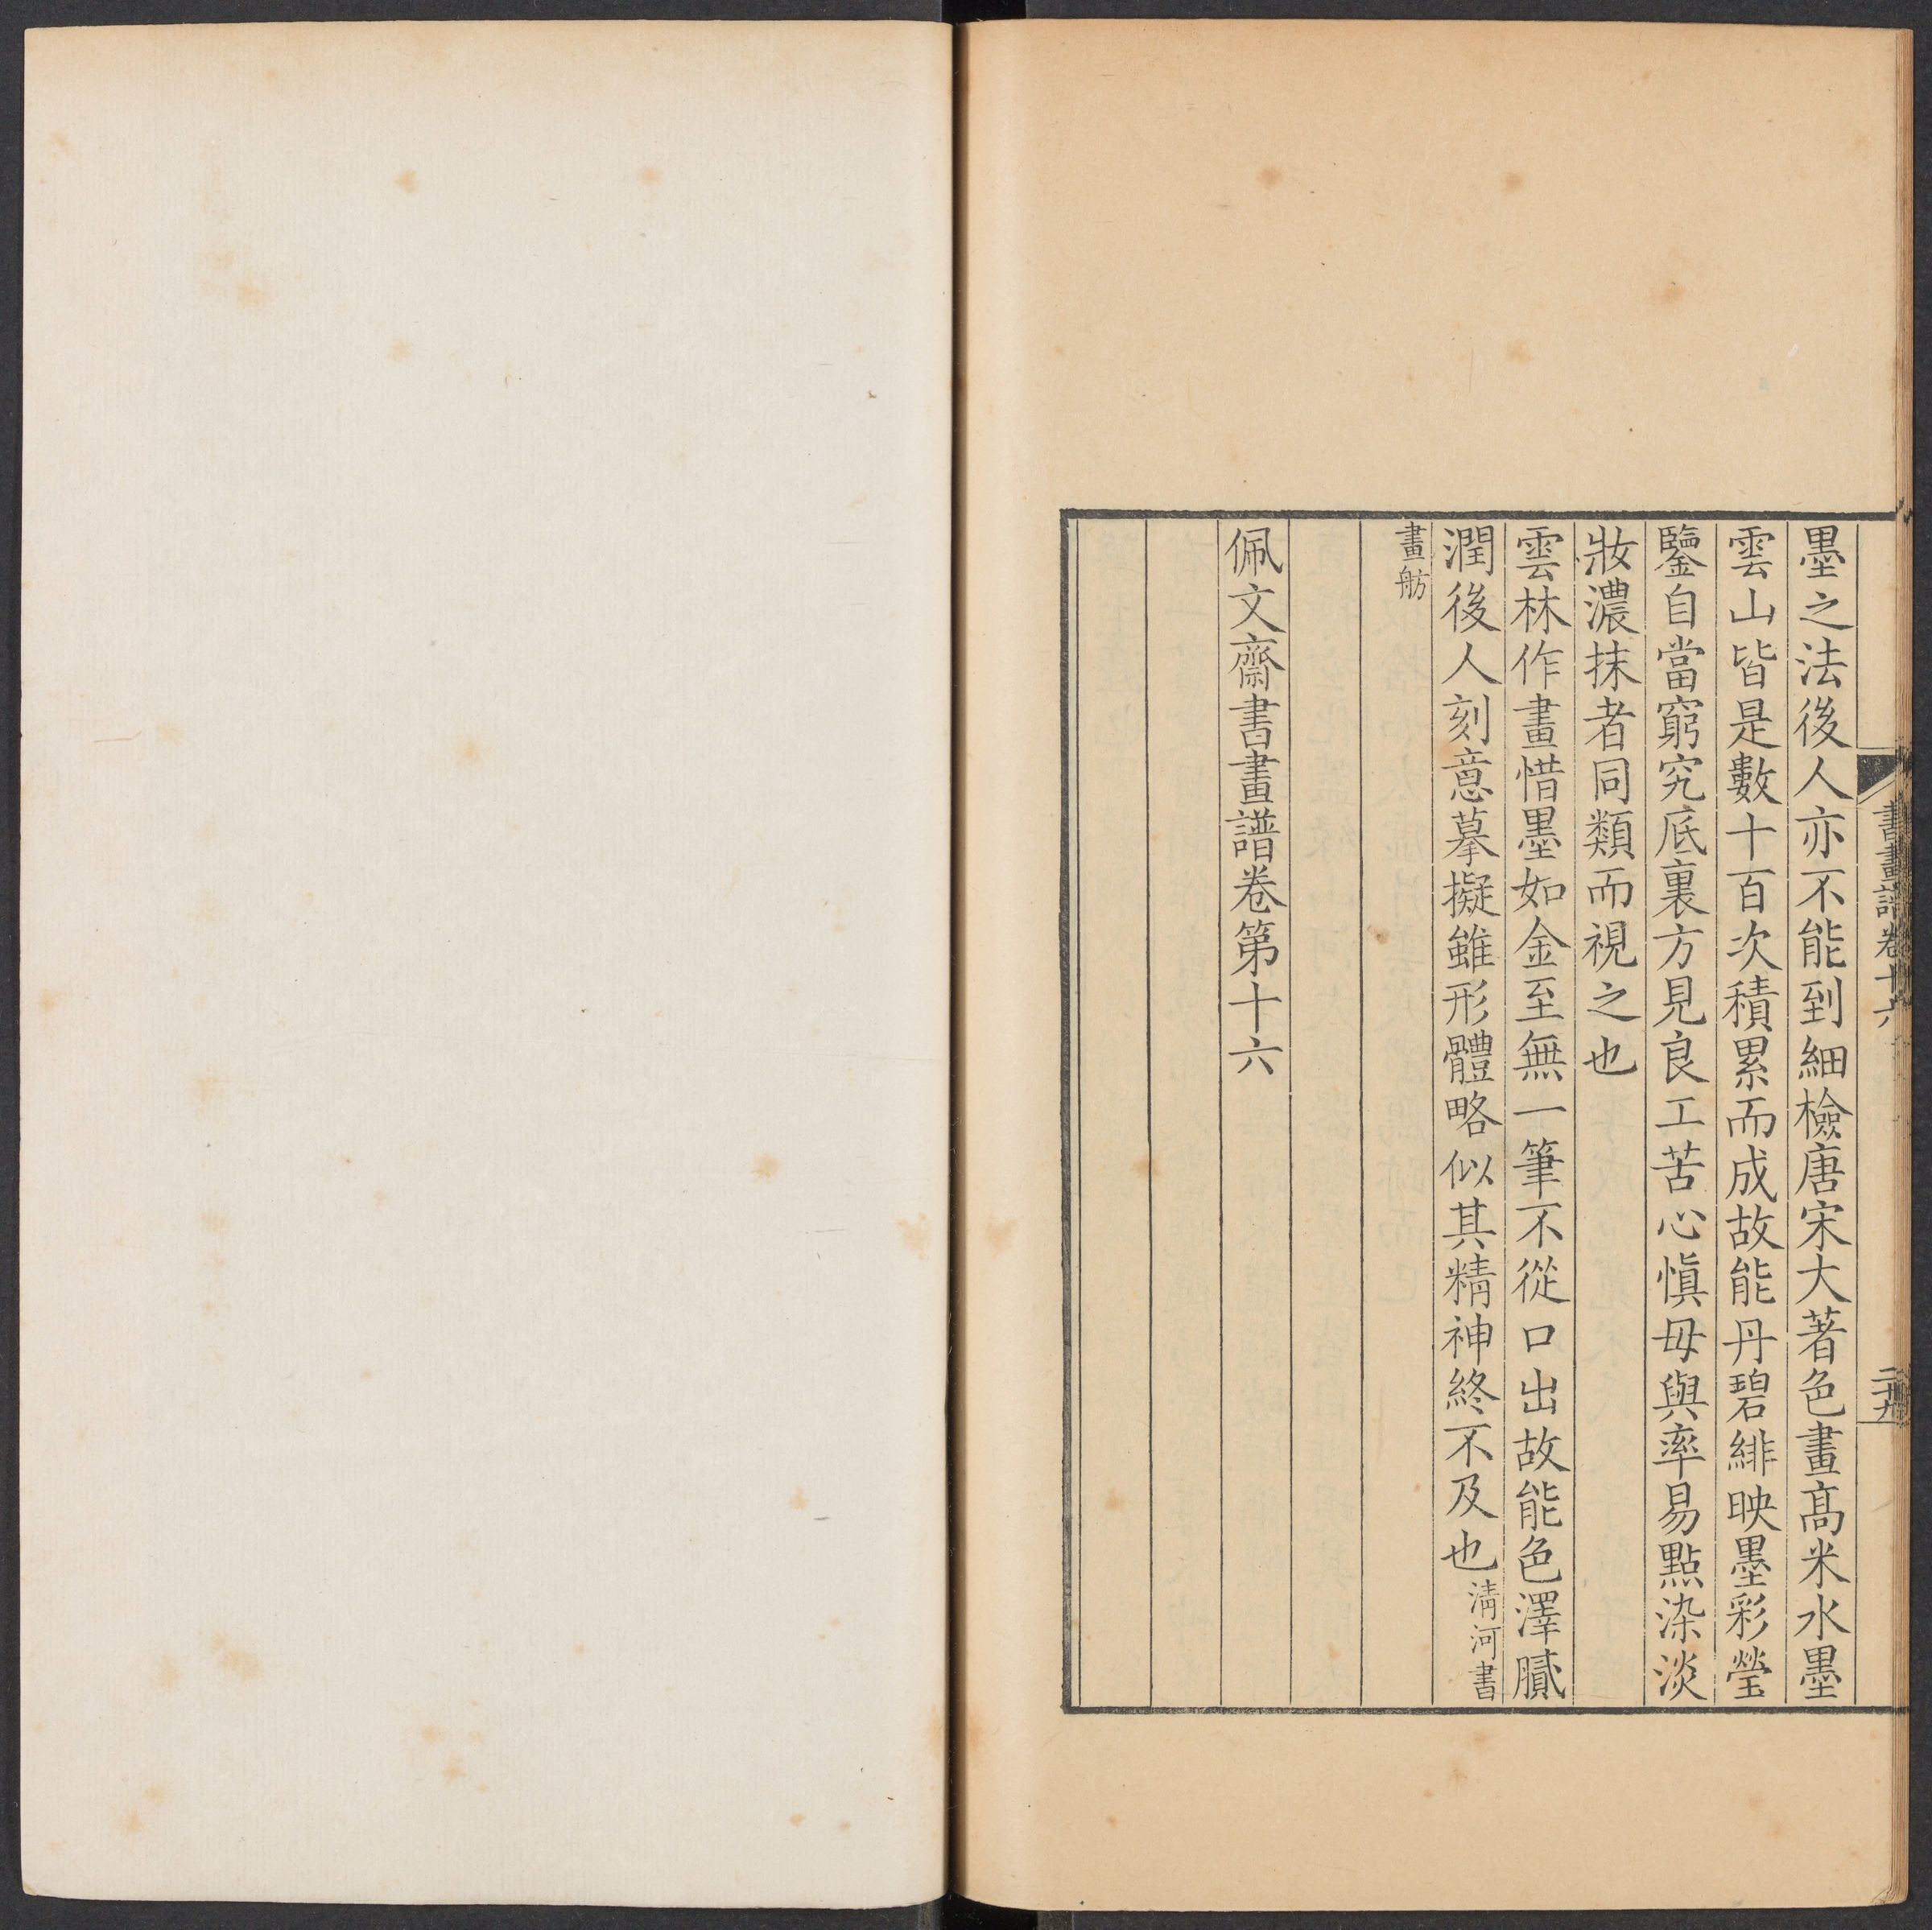 書畫譜卷十六
二十九
墨之法後人亦不能到細檢唐宋大著色畫髙米水墨
雲山皆是數十百次積累而成故能丹碧緋映墨彩瑩
鑒自當窮究底裏方見良工苦心愼毋與率易點染淡
妝濃抹者同類而視之也
雲林作畫惜墨如金至無一筆不從口出故能色澤膩
潤後人刻意摹擬雖形體略似其精神終不及也清河書
畫舫
佩文齋書畫譜卷第十六